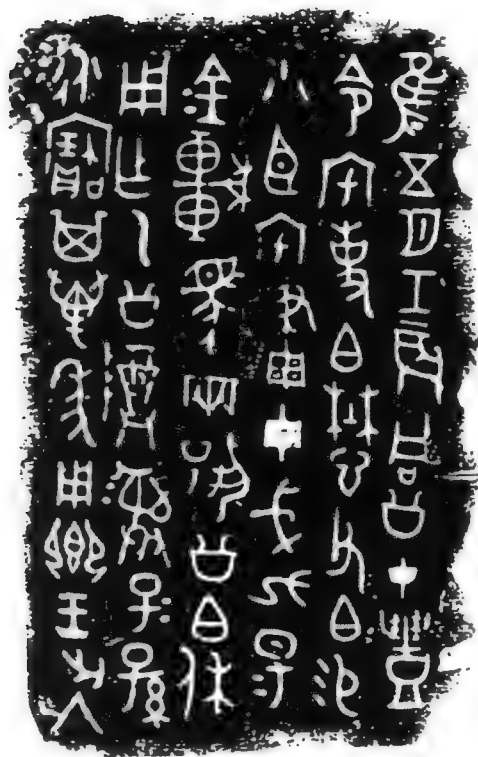 隹五月壬辰同公才豐
令宅事白懋父白易
小臣宅畫毌戈九昜
金車馬兩揚公白休
用乍乙公尊彝子＝孫
永寶其萬年用鄉王出入